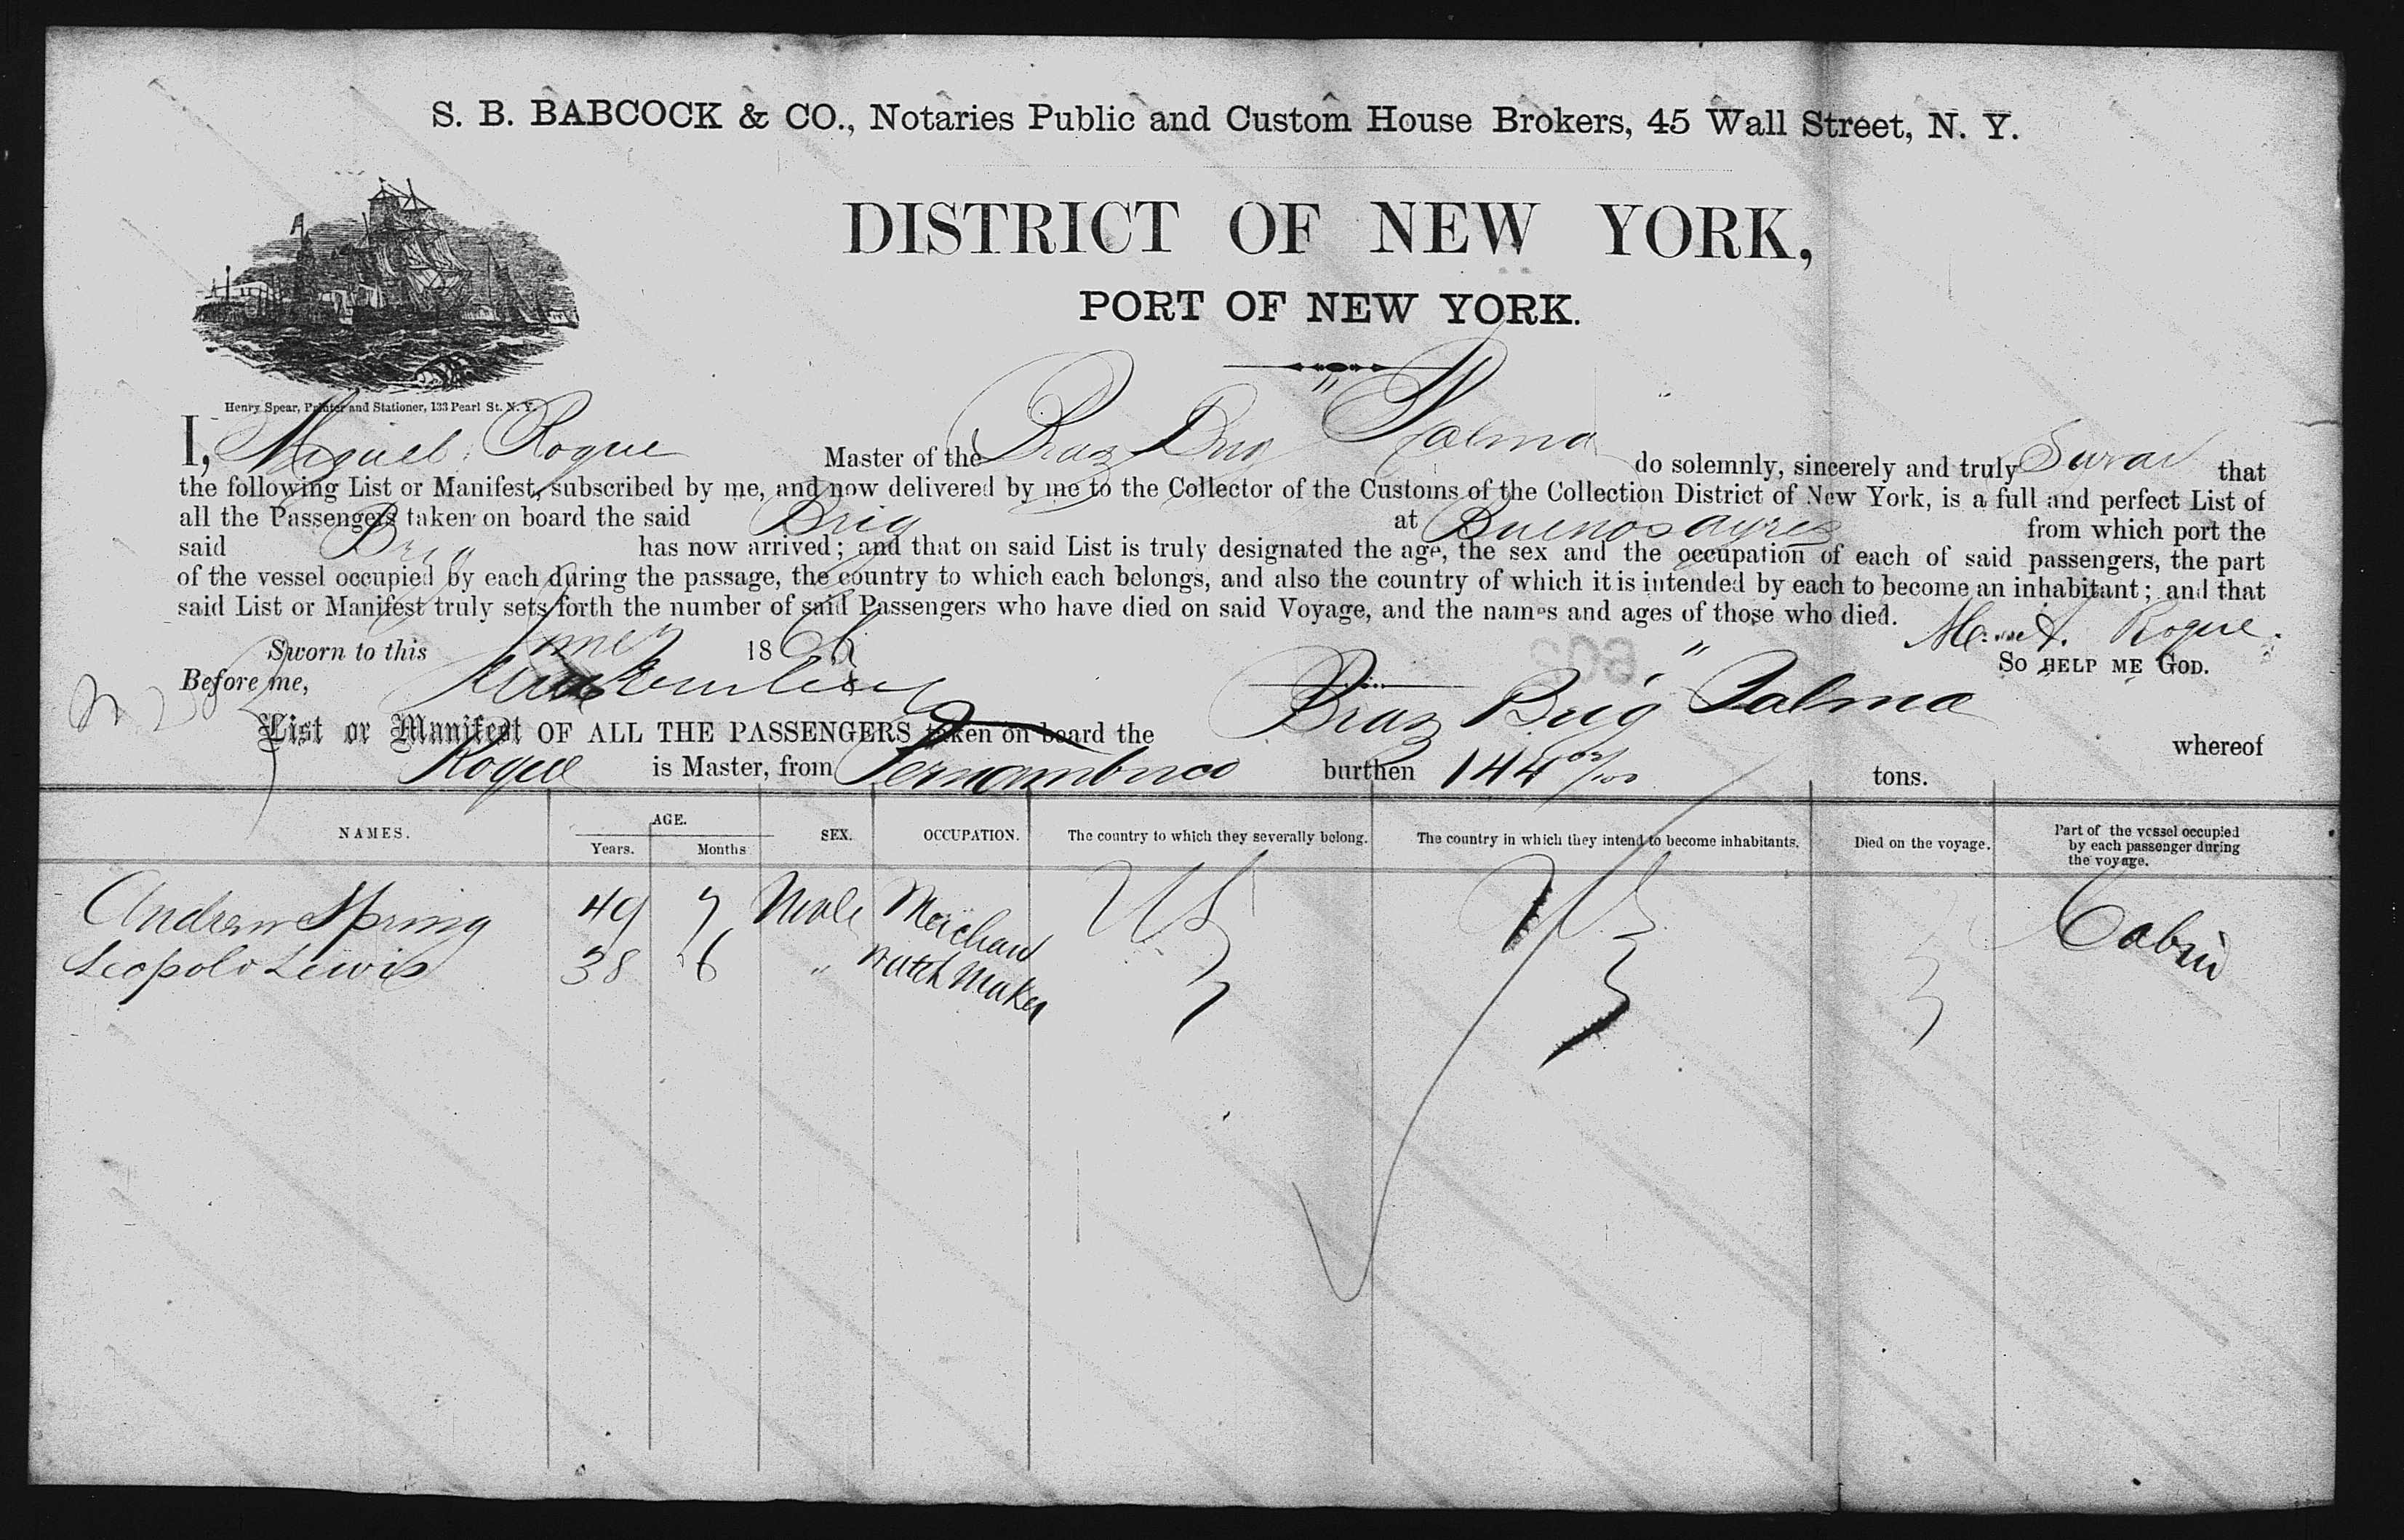 S. B. BABCOCK & CO., Notaries Public and Custom House Brokers, 45 Wall Street, N. Y.
DISTRICT OF NEW YORK,
PORT OF NEW YORK.
Henry Spear, Printer and Stationer, 133 Pearl St. N. Y.
I, Miguel Roque Master of the Braz Brig "Palma do solemnly, sincerely and truly Swear that
the following List or Manifest, subscribed by me, and now delivered by me to the Collector of the Customs of the Collection District of New York, is a full and perfect List of
all the Passengers taken on board the said Brig at Buenos Ayres from which port the
said Brig has now arrived; and that on said List is truly designated the age, the sex and the occupation of each of said passengers, the part
of the vessel occupied by each during the passage, the country to which each belongs, and also the country of which it is intended by each to become an inhabitant; and that
said List or Manifest truly sets forth the number of said Passengers who have died on said Voyage, and the names and ages of those who died.
Roque.
Sworn to this 186
SO HELP ME GOD.
Before me,
602
List or Manifest OF ALL THE PASSENGERS taken on board the Braz Brig "Palma whereof
Roque is Master, from Pernambuco burthen 144 00/100 tons.
NAMES. AGE. Years. Months SEX. OCCUPATION. The country to which they severally belong. The country in which they intend to become inhabitants. Died on the voyage. Part of the vessel occupied by each passenger during the voyage.
Andrew Spring 49 7 Male Merchant US US Cabin
Leopold Lewis 38 6 " Watch Maker